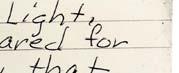 Light,
ared for
that